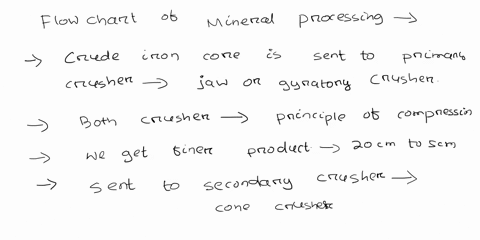 Flow chart of Mineral processing →
→ Crude iron core is sent to primary
crusher → jaw or gyratory crusher.
→ Both crusher → principle of compressin
→ we get finer product → 20 cm to 5cm
→ sent to secondary crusher →
cone crusher